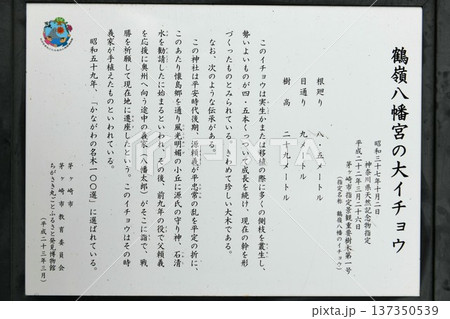 鶴嶺八幡宮の大イチョウ
昭和三十七年十月二日
神奈川県天然記念物指定
平成二十二年三月二十六日
茅ヶ崎市指定景観重要樹木第一号
(指定名称 鶴嶺八幡のイチョウ)
根廻り 八・五メートル
目通り 九メートル
樹高 二十九メートル
このイチョウは実生かまたは移植の際に多くの側枝を叢生し、
勢いよいものが四・五本くっついて成長を続け、現在の幹を形
づくったものとみられている。きわめて珍しい大木である。
なお、次のような伝承がある。
この神社は平安時代後期、源頼義が平忠常の乱を平定の折に、
このあたり懐島郷を通り風光明媚の小丘に源氏の守り神、石清
水を勧請したに始まるといわれ、その後、前九年の役で父頼義
を応援に奥州へ向う途中の義家(八幡太郎)がそこに詣で、戦
勝を祈願して現在地に遷座したという。このイチョウはその時
義家が手植えたものといわれている。
昭和五十九年、「かながわの名木一〇〇選」に選ばれている。
茅ヶ崎市
茅ヶ崎市教育委員会
ちがさき丸ごとふるさと発見博物館
(平成二十三年三月)
PIXTA
pixta.jp - 137350539